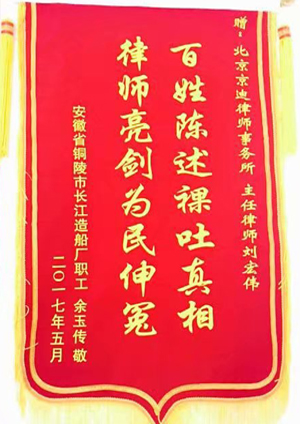 赠：北京京迪律师事务所 主任律师刘宏伟
百姓陈述裸吐真相
律师亮剑为民伸冤
安徽省铜陵市长江造船厂职工 余玉传 敬
二〇一七年五月